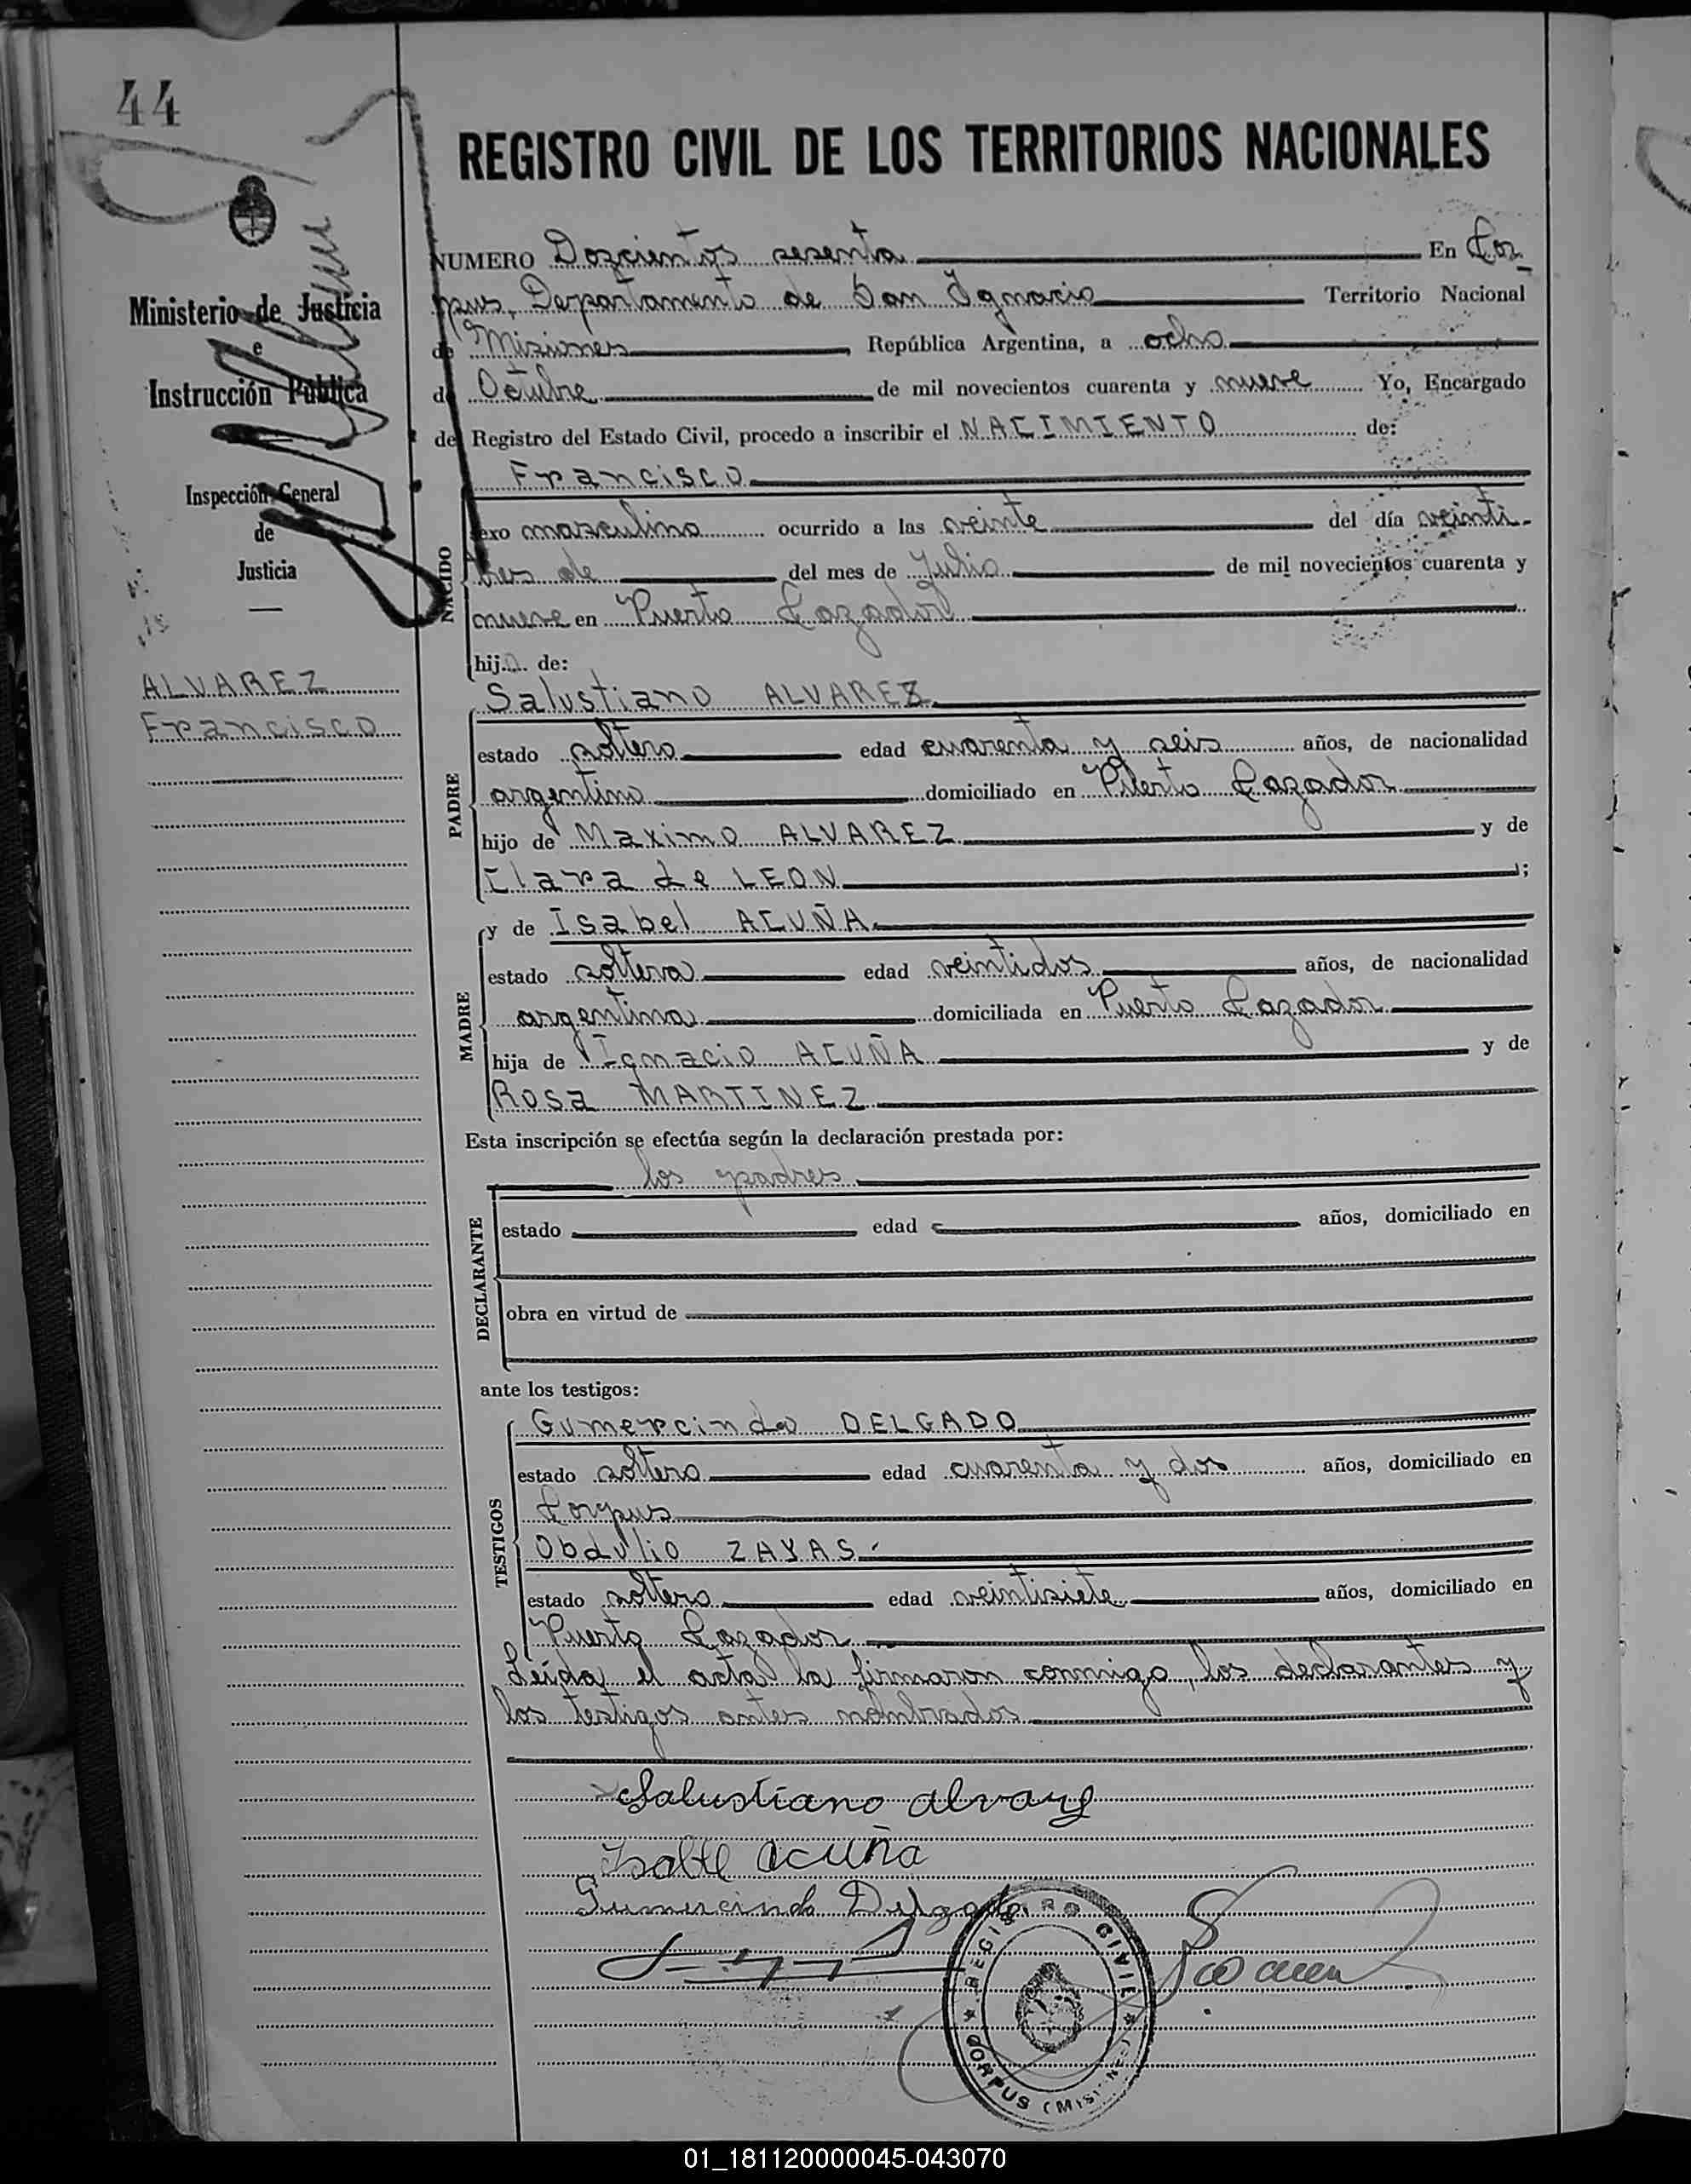 44
REGISTRO CIVIL DE LOS TERRITORIOS NACIONALES
NUMERO Dozcientos sesenta En Cor
pus, Departamento de San Ygnacio Territorio Nacional
de Misiones, República Argentina, a ocho
de Octubre de mil novecientos cuarenta y nueve Yo, Encargado
del Registro del Estado Civil, procedo a inscribir el NACIMIENTO de:
Ministerio de Justicia
e
Instrucción Pública
Inspección General
de
Justicia
ALVAREZ
Francisco
NACIDO
Francisco
sexo masculino ocurrido a las veinte del día veinti-
tres de del mes de Julio de mil novecientos cuarenta y
nueve en Puerto Cazador
hijo de:
PADRE
Salustiano ALVAREZ
estado soltero edad cuarenta y seis años, de nacionalidad
argentino domiciliado en Puerto Cazador
hijo de Maximo ALVAREZ y de
Clara de LEON;
MADRE
y de Isabel ACUÑA
estado soltera edad veintidos años, de nacionalidad
argentina domiciliada en Puerto Cazador
hija de Ignacio ACUÑA y de
Rosa MARTINEZ
Esta inscripción se efectúa según la declaración prestada por:
DECLARANTE
los padres
estado edad años, domiciliado en
obra en virtud de
ante los testigos:
TESTIGOS
Gumercindo DELGADO
estado soltero edad cuarenta y dos años, domiciliado en
Corpus
Obdulio ZAYAS.
estado soltero edad veintisiete años, domiciliado en
Puerto Cazador
Leída el acta la firmaron conmigo, los declarantes y
los testigos antes nombrados
Salustiano alvarez
Isabel acuña
Gumercindo Delgado
REGISTRO CIVIL
CORPUS (MISIONES)
01_181120000045-043070